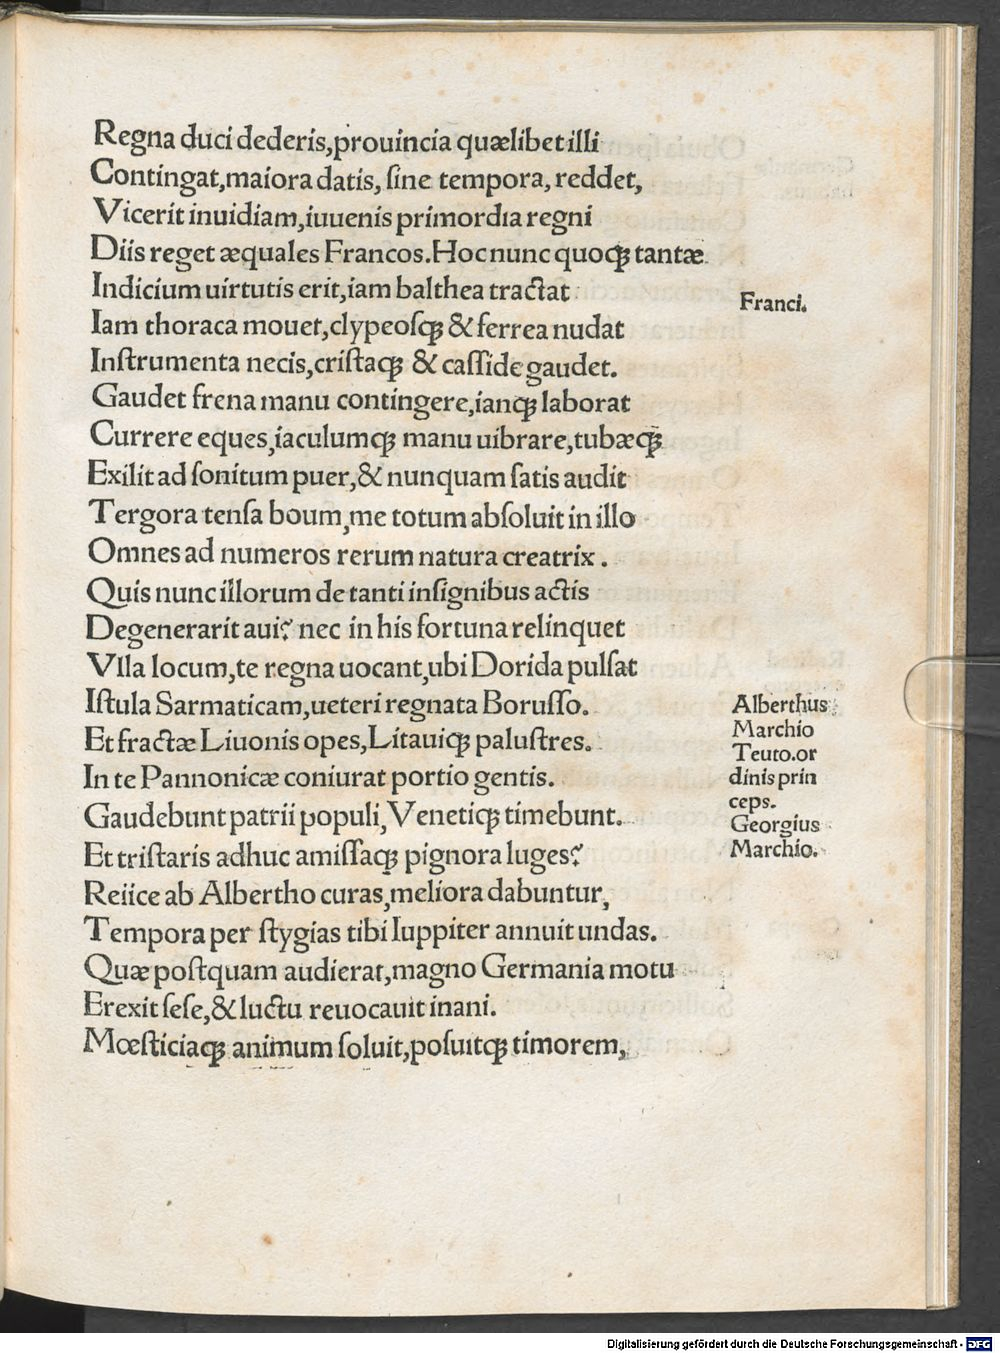 Regna duci dederis,prouincia quælibet illi
Contingat,maiora datis, ſine tempora, reddet,
Vicerit inuidiam,iuuenis primordia regni
Diis reget æquales Francos.Hoc nunc quoqꝫ tantæ
Indicium uirtutis erit,iam balthea tractat
Franci.
Iam thoraca mouet,clypeoſqꝫ & ferrea nudat
Inſtrumenta necis,criſtaqꝫ & caſſide gaudet.
Gaudet frena manu contingere,ianqꝫ laborat
Currere eques,iaculumqꝫ manu uibrare,tubæqꝫ
Exilit ad ſonitum puer,& nunquam ſatis audit
Tergora tenſa boum,me totum abſoluit in illo
Omnes ad numeros rerum natura creatrix.
Quis nunc illorum de tanti inſignibus actis
Degenerarit aui? nec in his fortuna relinquet
Vlla locum,te regna uocant,ubi Dorida pulſat
Iſtula Sarmaticam,ueteri regnata Boruſſo.
Et fractæ Liuonis opes,Litauiqꝫ paluſtres.
In te Pannonicæ coniurat portio gentis.
Gaudebunt patrii populi,Venetiqꝫ timebunt.
Et triſtaris adhuc amiſſaqꝫ pignora luges?
Alberthus
Marchio
Teuto.or
dinis prin
ceps.
Georgius
Marchio.
Reiice ab Albertho curas,meliora dabuntur,
Tempora per ſtygias tibi Iuppiter annuit undas.
Quæ poſtquam audierat,magno Germania motu
Erexit ſeſe,& luctu reuocauit inani.
Mœſticiaqꝫ animum ſoluit,poſuitqꝫ timorem,
Digitalisierung gefördert durch die Deutsche Forschungsgemeinschaft - DFG